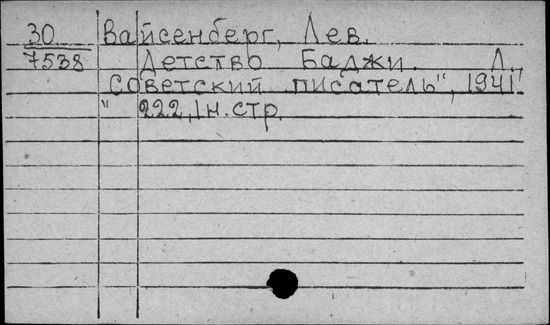 30 Вайсенберг, Лев.
7538 Детство Баджи. Л.,
"Советский писатель", 1941.
222, 1 н. стр.